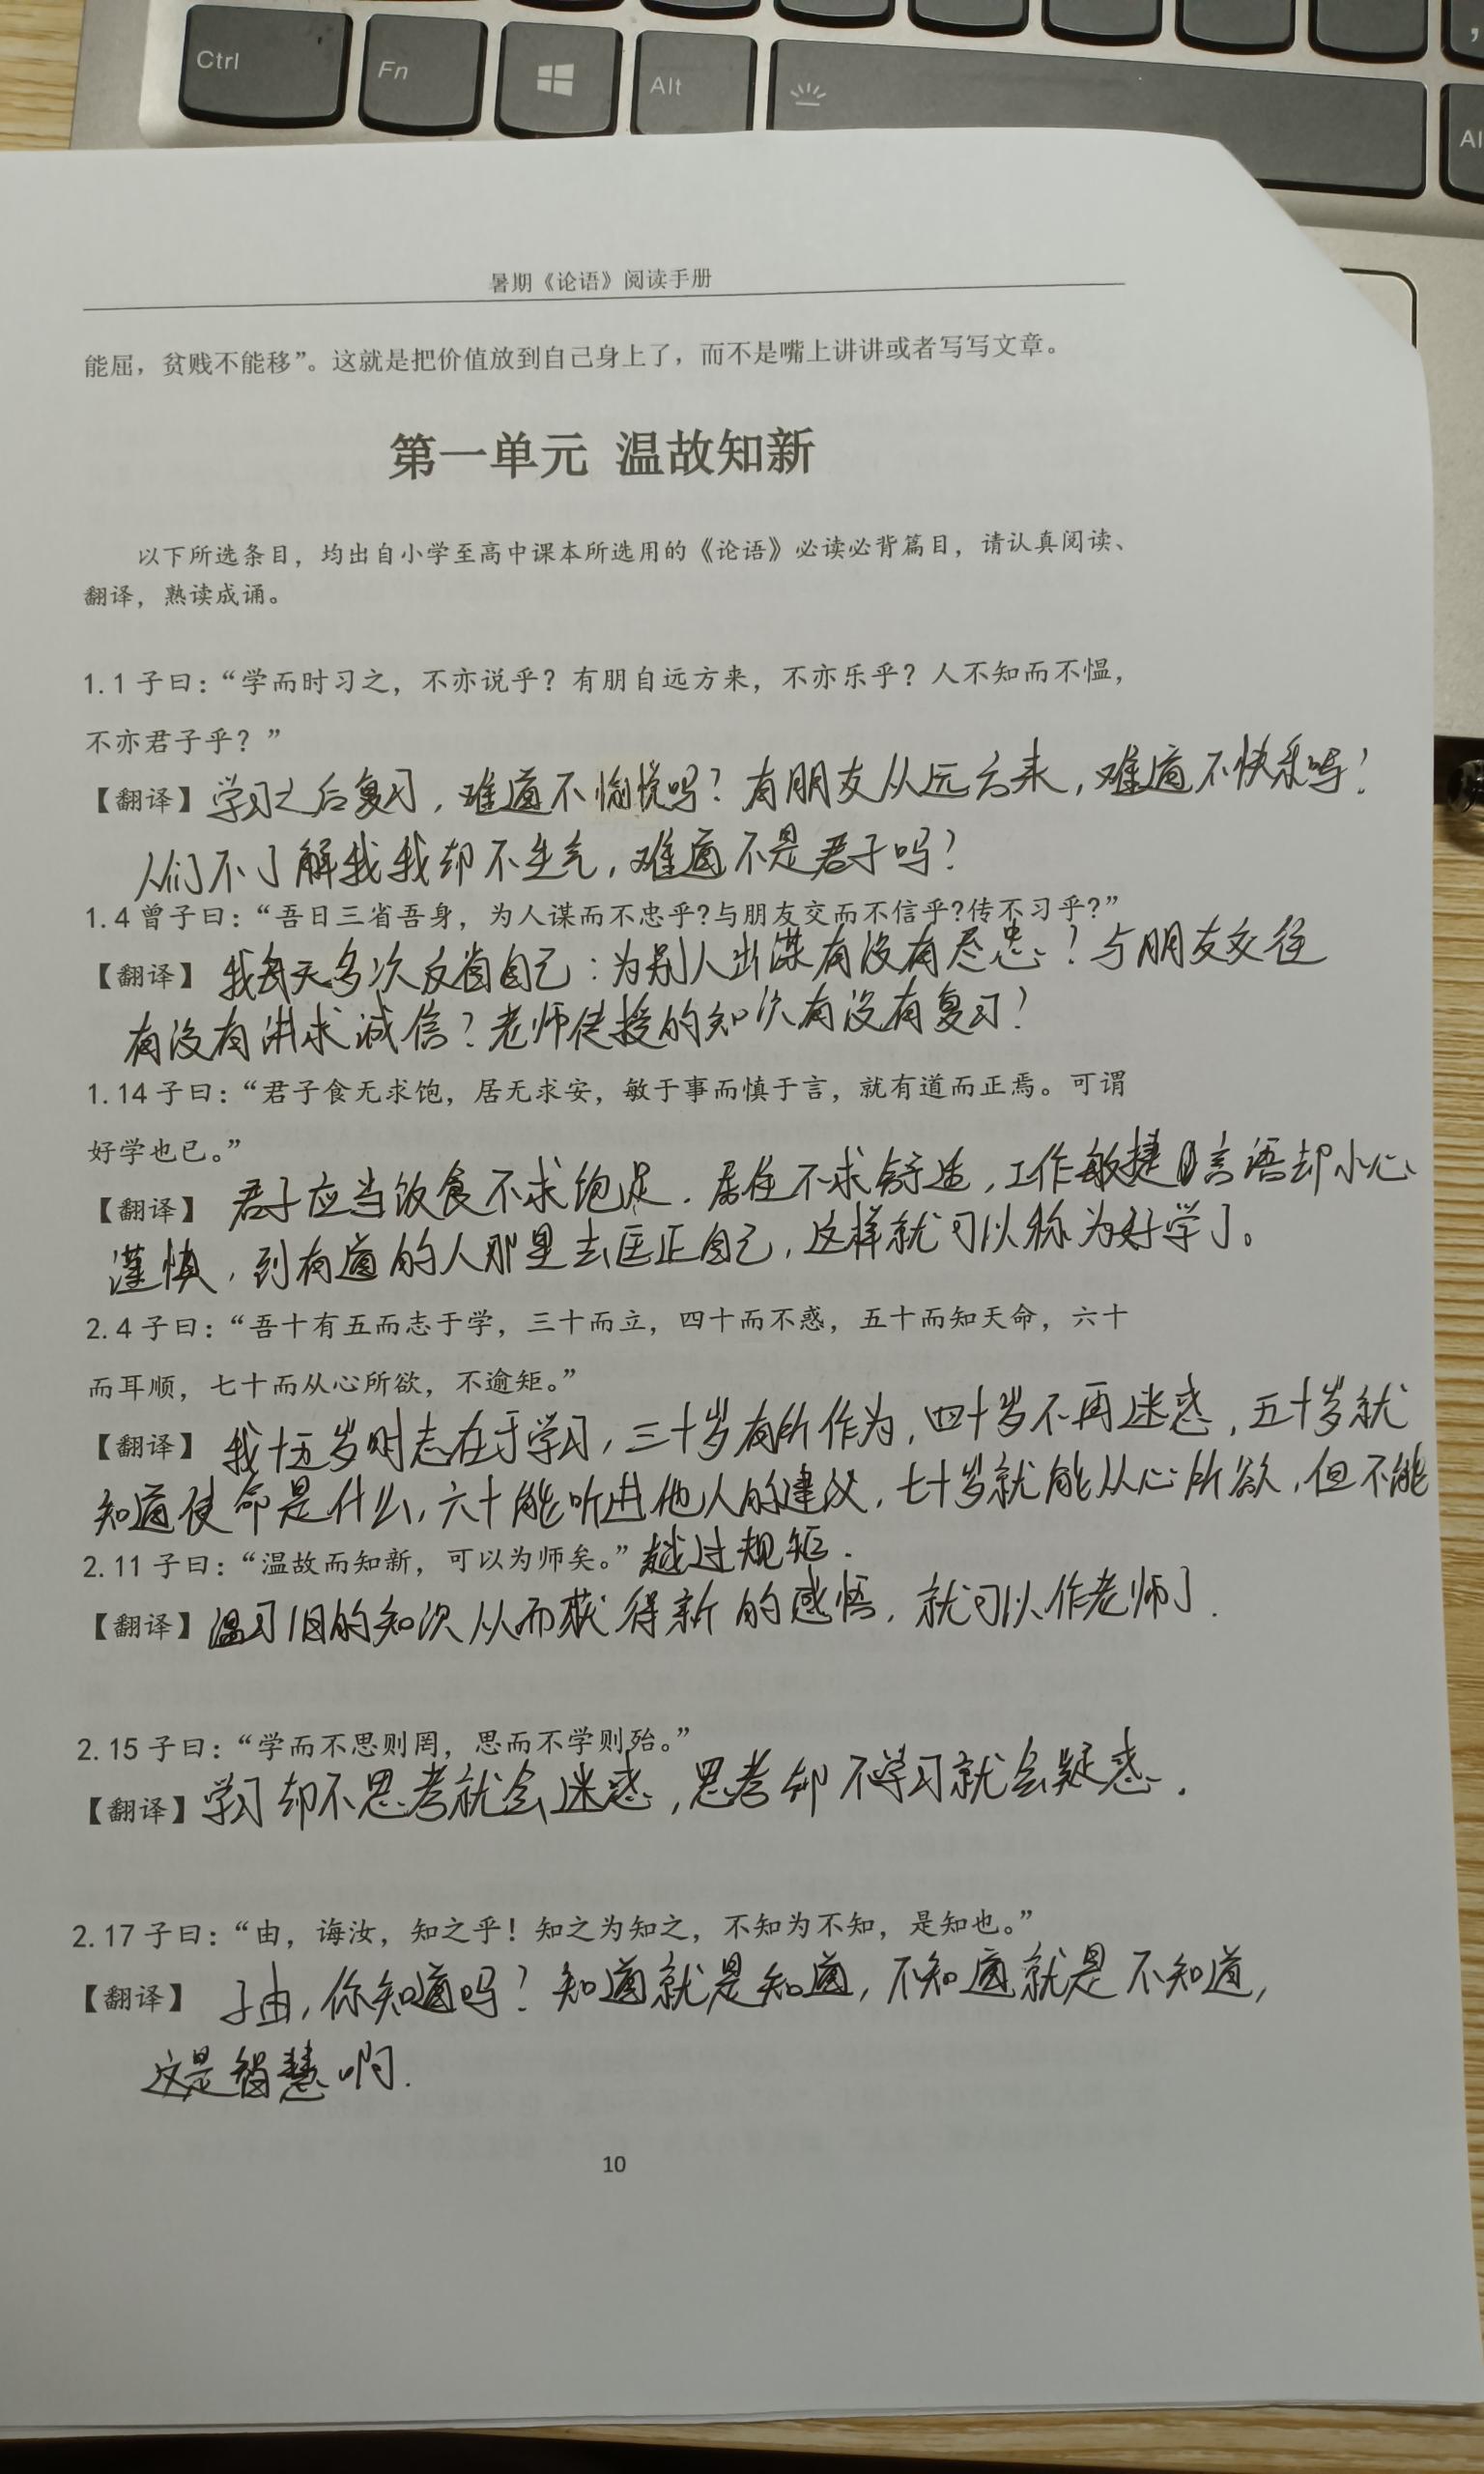 Ctrl
Fn
Alt
Al
暑期《论语》阅读手册
能屈，贫贱不能移”。这就是把价值放到自己身上了，而不是嘴上讲讲或者写写文章。
第一单元 温故知新
以下所选条目，均出自小学至高中课本所选用的《论语》必读必背篇目，请认真阅读、
翻译，熟读成诵。
1.1 子曰：“学而时习之，不亦说乎？有朋自远方来，不亦乐乎？人不知而不愠，
不亦君子乎？”
【翻译】学习之后复习，难道不愉悦吗？有朋友从远方来，难道不快乐吗？
人们不了解我我却不生气，难道不是君子吗？
1.4 曾子曰：“吾日三省吾身，为人谋而不忠乎?与朋友交而不信乎?传不习乎?”
【翻译】我每天多次反省自己：为别人出谋有没有尽忠？与朋友交往
有没有讲求诚信？老师传授的知识有没有复习？
1.14 子曰：“君子食无求饱，居无求安，敏于事而慎于言，就有道而正焉。可谓
好学也已。”
【翻译】君子应当饮食不求饱足，居住不求舒适，工作敏捷言语却小心
谨慎，到有道的人那里去匡正自己，这样就可以称为好学了。
2.4 子曰：“吾十有五而志于学，三十而立，四十而不惑，五十而知天命，六十
而耳顺，七十而从心所欲，不逾矩。”
【翻译】我十五岁时志在于学习，三十岁有所作为，四十岁不再迷惑，五十岁就
知道使命是什么，六十能听进他人的建议，七十岁就能从心所欲，但不能
越过规矩.
2.11 子曰：“温故而知新，可以为师矣。”
【翻译】温习旧的知识从而获得新的感悟，就可以作老师了.
2.15 子曰：“学而不思则罔，思而不学则殆。”
【翻译】学习却不思考就会迷惑，思考却不学习就会疑惑.
2.17 子曰：“由，诲汝，知之乎！知之为知之，不知为不知，是知也。”
【翻译】子由，你知道吗？知道就是知道，不知道就是不知道，
这是智慧啊.
10